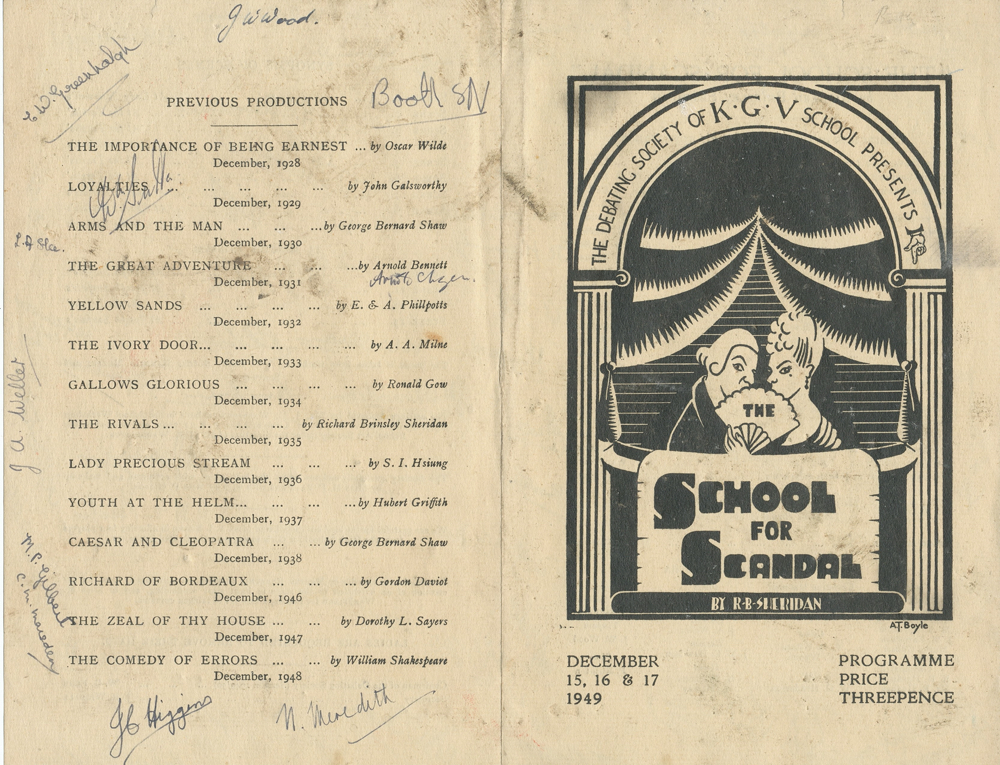 J W Wood.
E. W. Greenhalgh
Booth SN
PREVIOUS PRODUCTIONS
THE IMPORTANCE OF BEING EARNEST ... by Oscar Wilde
December, 1928
LOYALTIES ... ... ... ... ... by John Galsworthy
December, 1929
ARMS AND THE MAN ... ... ... by George Bernard Shaw
December, 1930
THE GREAT ADVENTURE ... ... ... by Arnold Bennett
December, 1931
YELLOW SANDS ... ... ... ... by E. & A. Phillpotts
December, 1932
THE IVORY DOOR... ... ... ... ... by A. A. Milne
December, 1933
GALLOWS GLORIOUS ... ... ... ... by Ronald Gow
December, 1934
THE RIVALS ... ... ... ... by Richard Brinsley Sheridan
December, 1935
LADY PRECIOUS STREAM ... ... ... by S. I. Hsiung
December, 1936
YOUTH AT THE HELM... ... ... ... by Hubert Griffith
December, 1937
CAESAR AND CLEOPATRA ... ... by George Bernard Shaw
December, 1938
RICHARD OF BORDEAUX ... ... ... by Gordon Daviot
December, 1946
THE ZEAL OF THY HOUSE ... ... by Dorothy L. Sayers
December, 1947
THE COMEDY OF ERRORS ... ... by William Shakespeare
December, 1948
J A Weller
M. P. Gilbert
JC Higgins
N. Meredith
THE DEBATING SOCIETY OF K·G·V SCHOOL PRESENTS
THE
SCHOOL
FOR
SCANDAL
BY R·B·SHERIDAN
A.T. Boyle
DECEMBER
15, 16 & 17
1949
PROGRAMME
PRICE
THREEPENCE